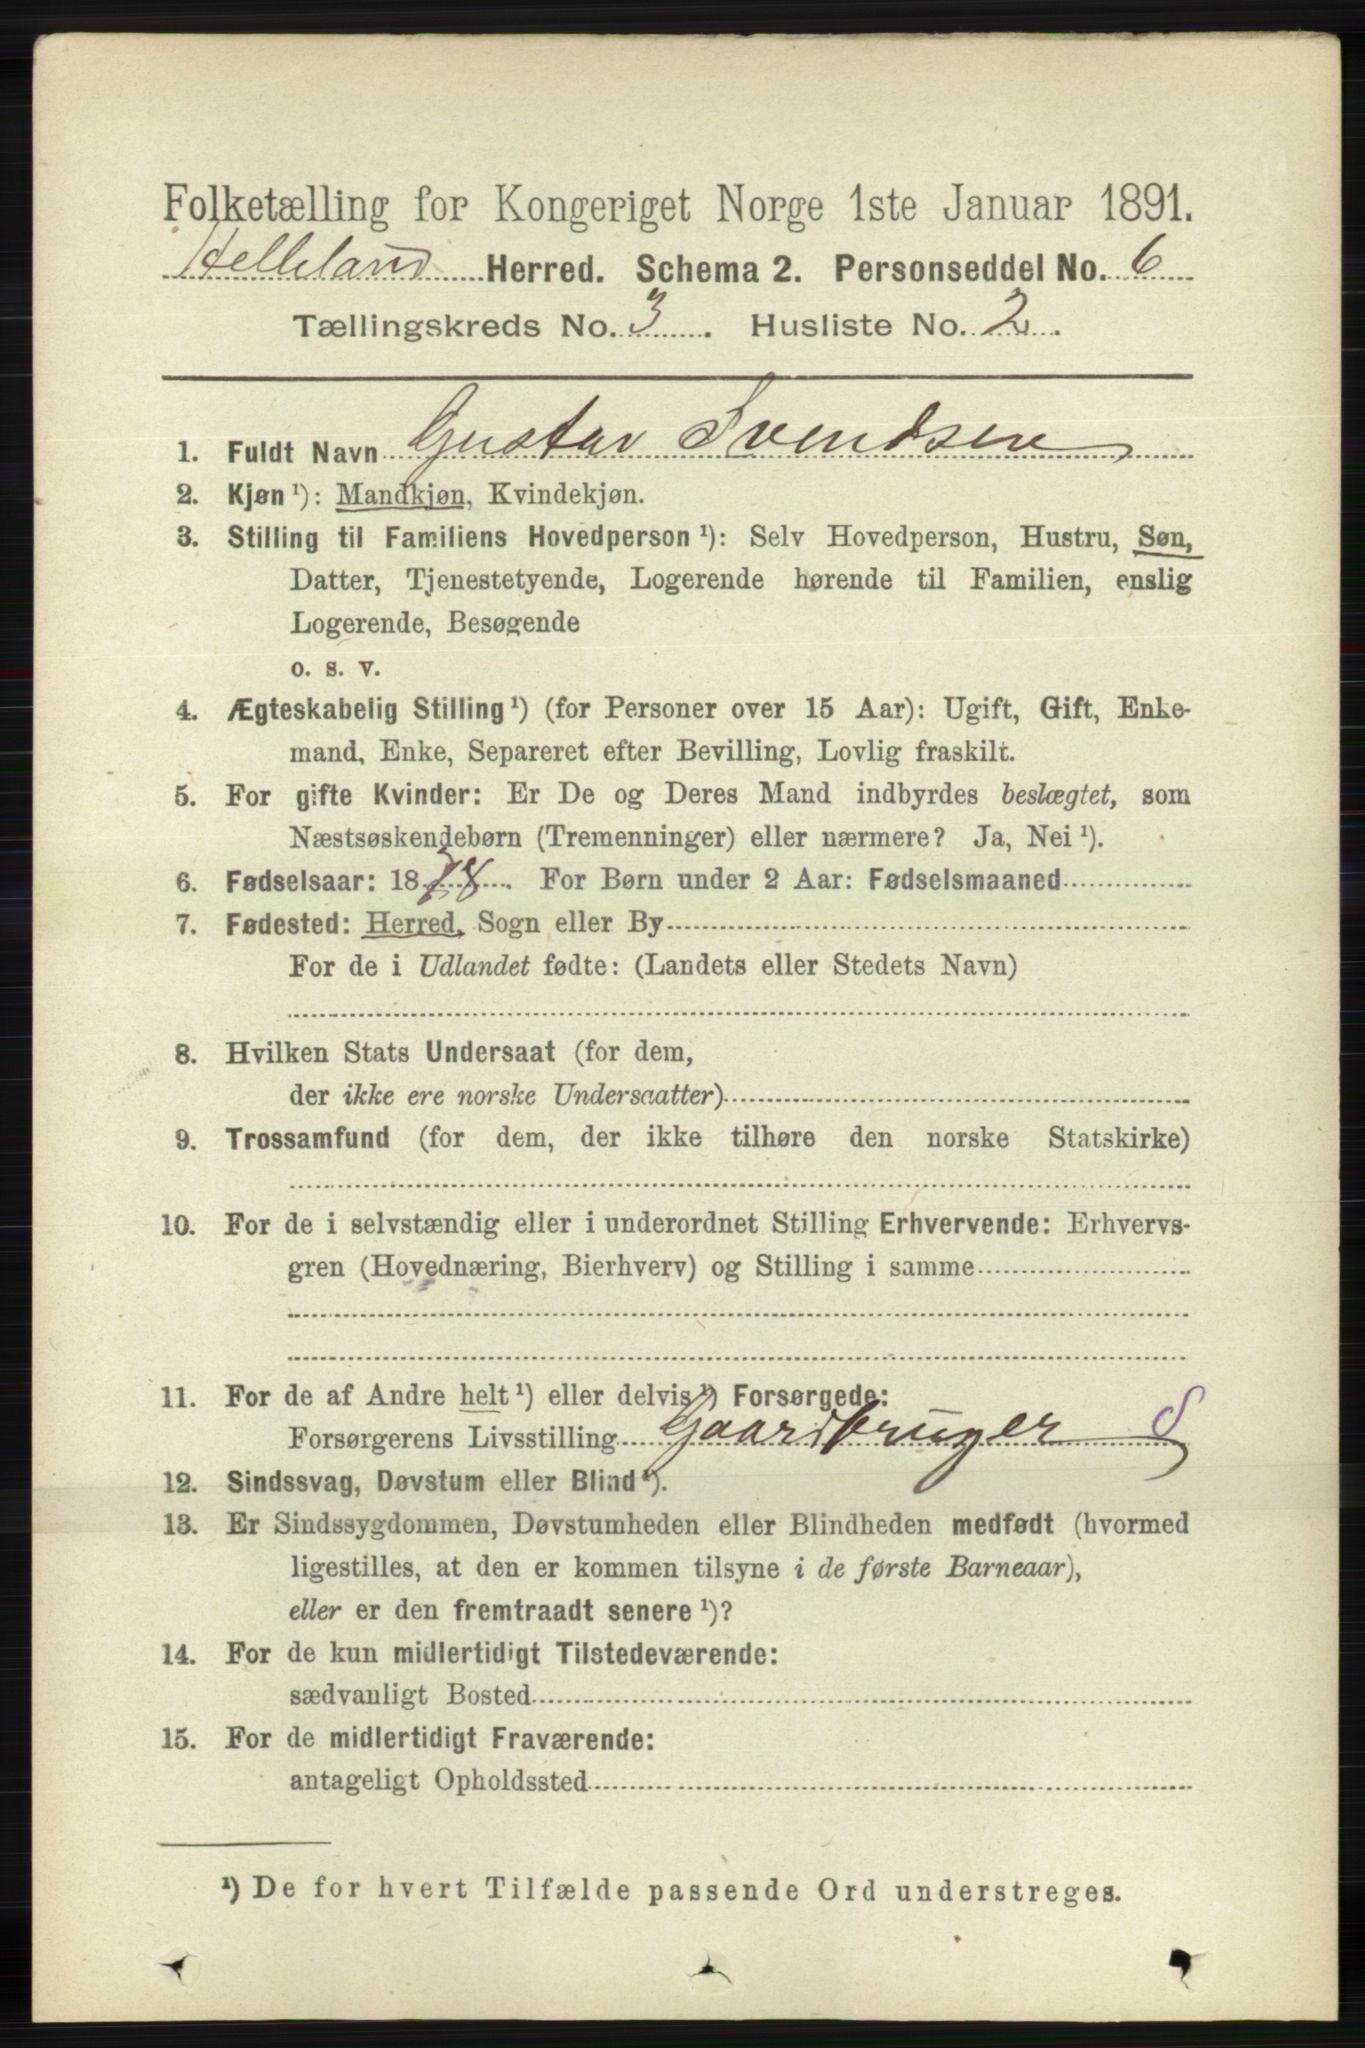 Folketælling for Kongeriget Norge 1ste Januar 1891.
Helleland Herred. Schema 2. Personseddel No. 6
Tællingskreds No. 3. Husliste No. 2.
1. Fuldt Navn Gustav Svendsen
2. Kjøn ¹): Mandkjøn, Kvindekjøn.
3. Stilling til Familiens Hovedperson ¹): Selv Hovedperson, Hustru, Søn,
Datter, Tjenestetyende, Logerende hørende til Familien, enslig
Logerende, Besøgende
o. s. v.
4. Ægteskabelig Stilling ¹) (for Personer over 15 Aar): Ugift, Gift, Enke-
mand, Enke, Separeret efter Bevilling, Lovlig fraskilt.
5. For gifte Kvinder: Er De og Deres Mand indbyrdes beslægtet, som
Næstsøskendebørn (Tremenninger) eller nærmere? Ja, Nei ¹).
6. Fødselsaar: 1878. For Børn under 2 Aar: Fødselsmaaned
7. Fødested: Herred, Sogn eller By
For de i Udlandet fødte: (Landets eller Stedets Navn)
8. Hvilken Stats Undersaat (for dem,
der ikke ere norske Undersaatter)
9. Trossamfund (for dem, der ikke tilhøre den norske Statskirke)
10. For de i selvstændig eller i underordnet Stilling Erhvervende: Erhvervs-
gren (Hovednæring, Bierhverv) og Stilling i samme
11. For de af Andre helt ¹) eller delvis ¹) Forsørgede:
Forsørgerens Livsstilling Gaardbruger S
12. Sindssvag, Døvstum eller Blind ¹).
13. Er Sindssygdommen, Døvstumheden eller Blindheden medfødt (hvormed
ligestilles, at den er kommen tilsyne i de første Barneaar),
eller er den fremtraadt senere ¹)?
14. For de kun midlertidigt Tilstedeværende:
sædvanligt Bosted
15. For de midlertidigt Fraværende:
antageligt Opholdssted
¹) De for hvert Tilfælde passende Ord understreges.